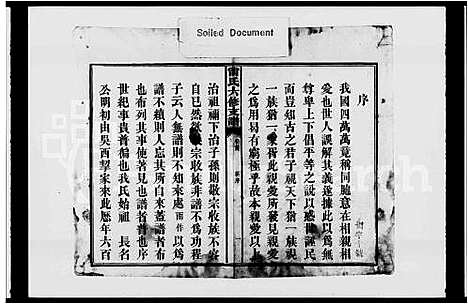 Soiled Document
序
我國四萬萬竟稱同胞意在相親相
愛也世人誤解其義遂據此以爲無
尊卑上下倡平等之說以惑世誣民
而豈知古之君子視天下猶一族視
一族猶一家胥此親愛所發見親愛
之爲用易有窮極乎故本親愛以上
氏六修支譜
治祖禰下治子孫則敬宗收族不容
自已然敬宗收族非譜不爲功程
子云人無譜則不知來處而作以爲
譜不續則人忘其所自來蓋譜者布
也布列其事使著見也譜者普也序
世紀事貴普徧也我氏始祖 長名
公明初由吳西挈家來此歷年六百